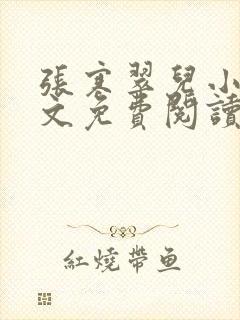 張寒翠兒小
文免費閱讀
紅燒帶鱼